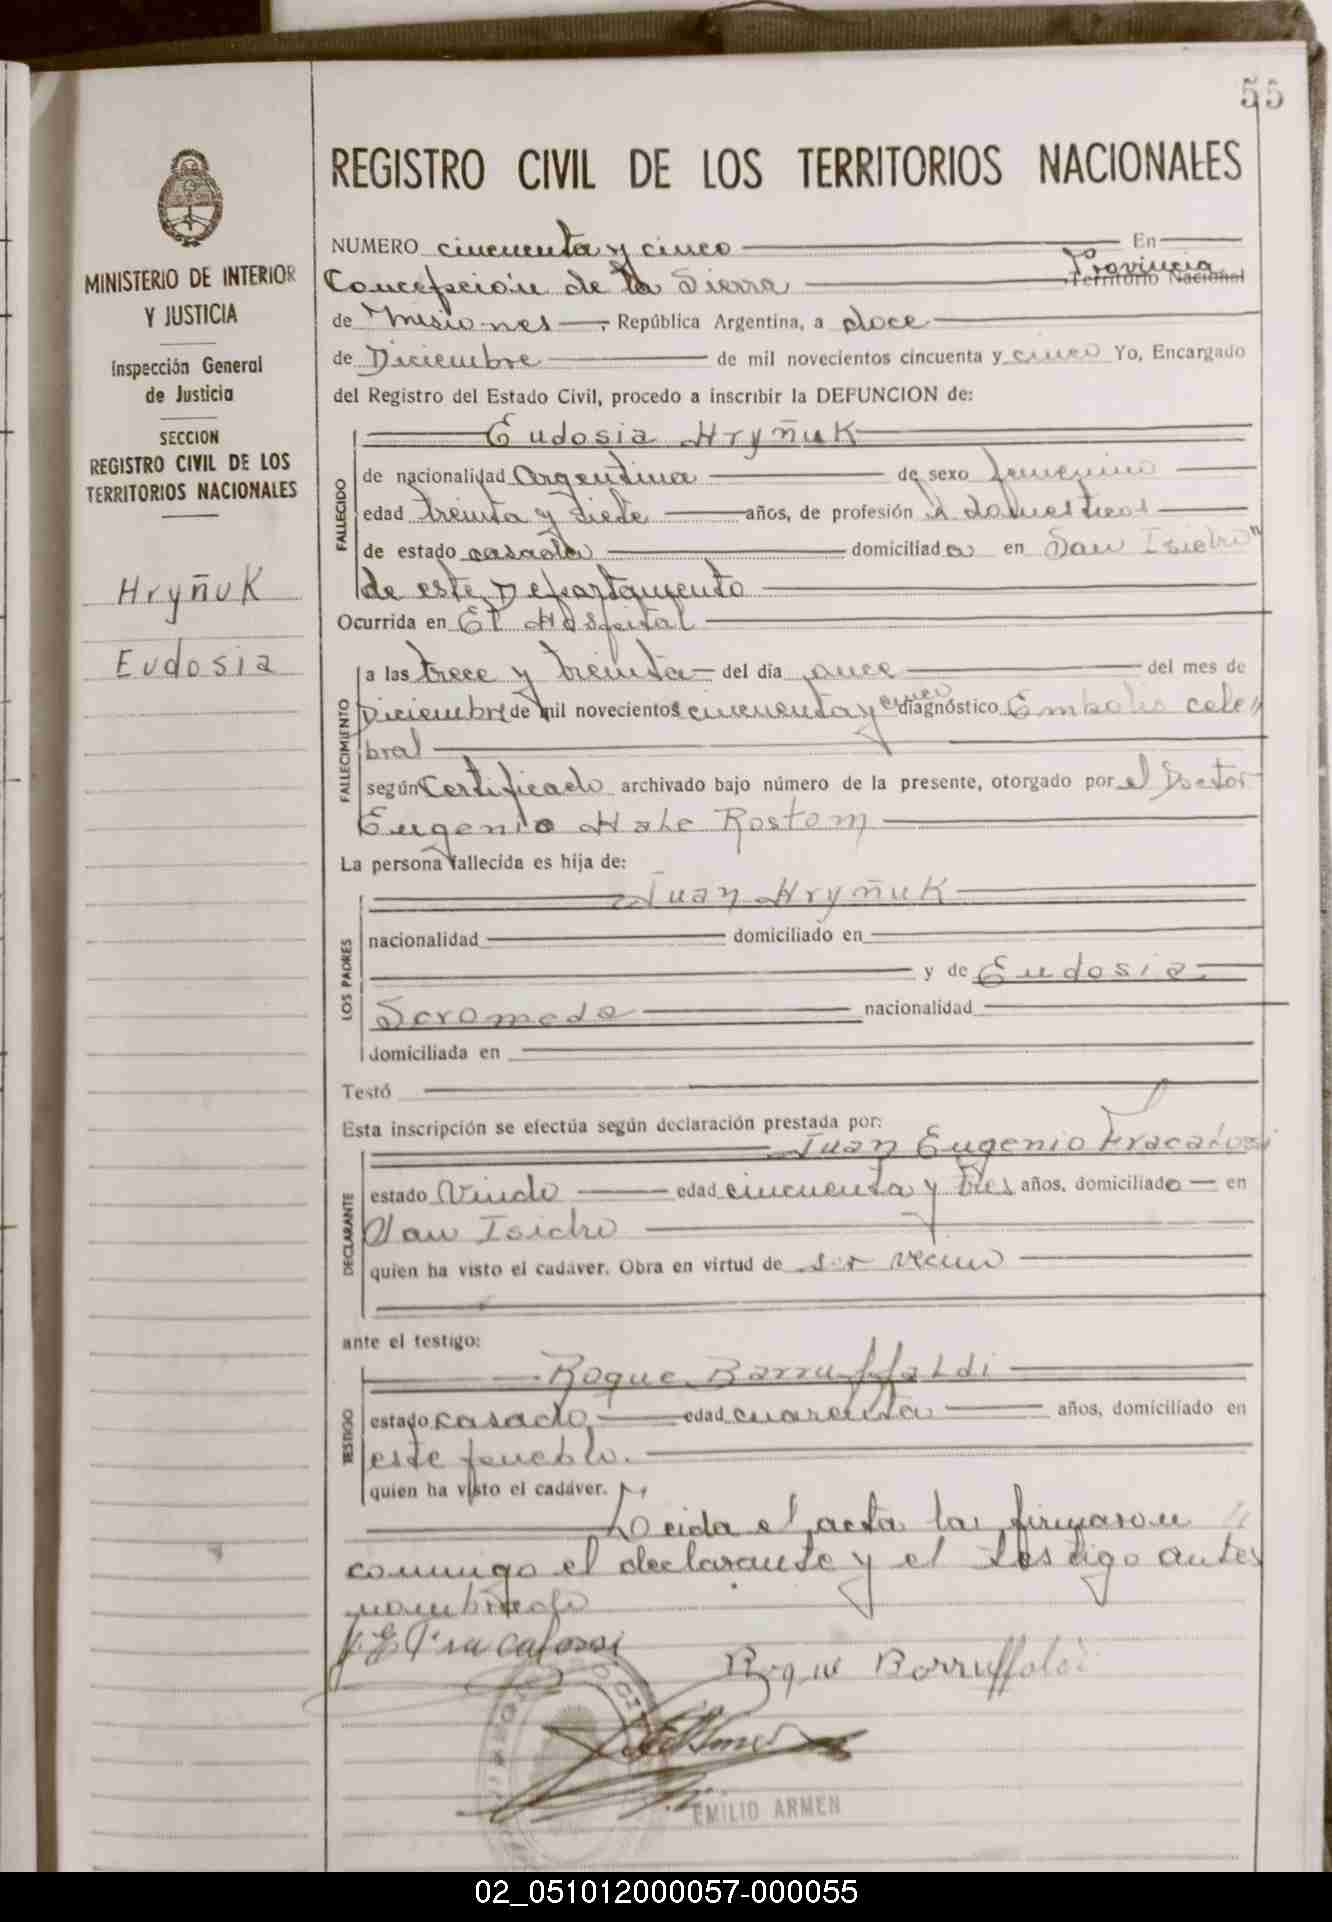 55
REGISTRO CIVIL DE LOS TERRITORIOS NACIONALES
MINISTERIO DE INTERIOR
Y JUSTICIA
Inspección General
de Justicia
SECCION
REGISTRO CIVIL DE LOS
TERRITORIOS NACIONALES
Hryñuk
Eudosia
NUMERO cincuenta y cinco En
Concepción de la Sierra Provincia Territorio Nacional
de Misiones, República Argentina, a doce
de Diciembre de mil novecientos cincuenta y cinco Yo, Encargado
del Registro del Estado Civil, procedo a inscribir la DEFUNCION de:
Eudosia Hryñuk
FALLECIDO
de nacionalidad Argentina de sexo femenino
edad treinta y siete años, de profesión domesticos
de estado casada domiciliada en San Isidro"
de este Departamento
Ocurrida en El Hospital
FALLECIMIENTO
a las trece y treinta del día once del mes de
Diciembre de mil novecientos cincuenta y cinco diagnóstico Embolio cele"
bral
según Certificado archivado bajo número de la presente, otorgado por el Doctor
Eugenio Hale Rostom
La persona fallecida es hija de:
LOS PADRES
Juan Hryñuk
nacionalidad domiciliado en
y de Eudosia
Scromeda
nacionalidad
domiciliada en
Testó
Esta inscripción se efectúa según declaración prestada por:
DECLARANTE
Juan Eugenio Fracalossi
estado Viudo edad cincuenta y tres años, domiciliado en
San Isidro
quien ha visto el cadáver. Obra en virtud de ser vecino
ante el testigo:
TESTIGO
Roque Barruffaldi
estado casado edad cuarenta años, domiciliado en
este pueblo.
quien ha visto el cadáver.
Leida el acta la firmaron
conmigo el declarante y el testigo antes
nombrado
J. E. Fracalossi
Roque Borruffaldi
EMILIO ARMEN
02_051012000057-000055